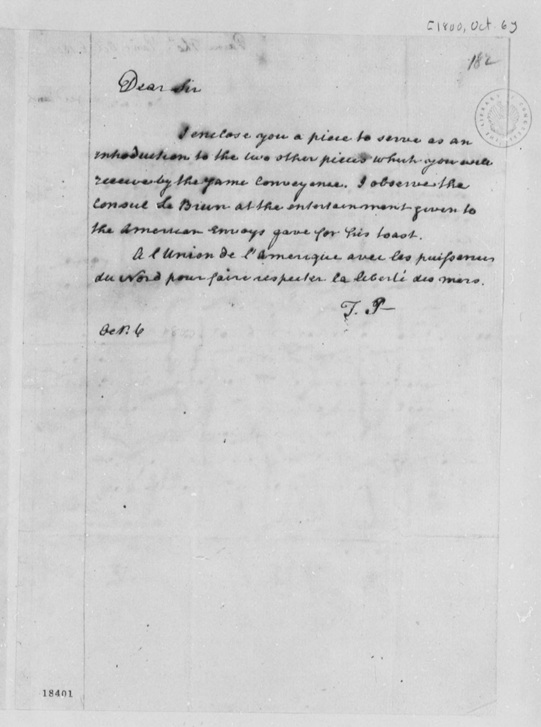 [1800, Oct. 6]
182
Dear Sir
I enclose you a piece to serve as an
introduction to the two other pieces which you will
receive by the same Conveyance. I observe the
Consul Le Brun at the entertainment given to
the American Envoys gave for his toast.
A l'Union de l'Amerique avec les puissances
du Nord pour faire respecter la liberté des mers.
T. P—
Oct. 6
18401